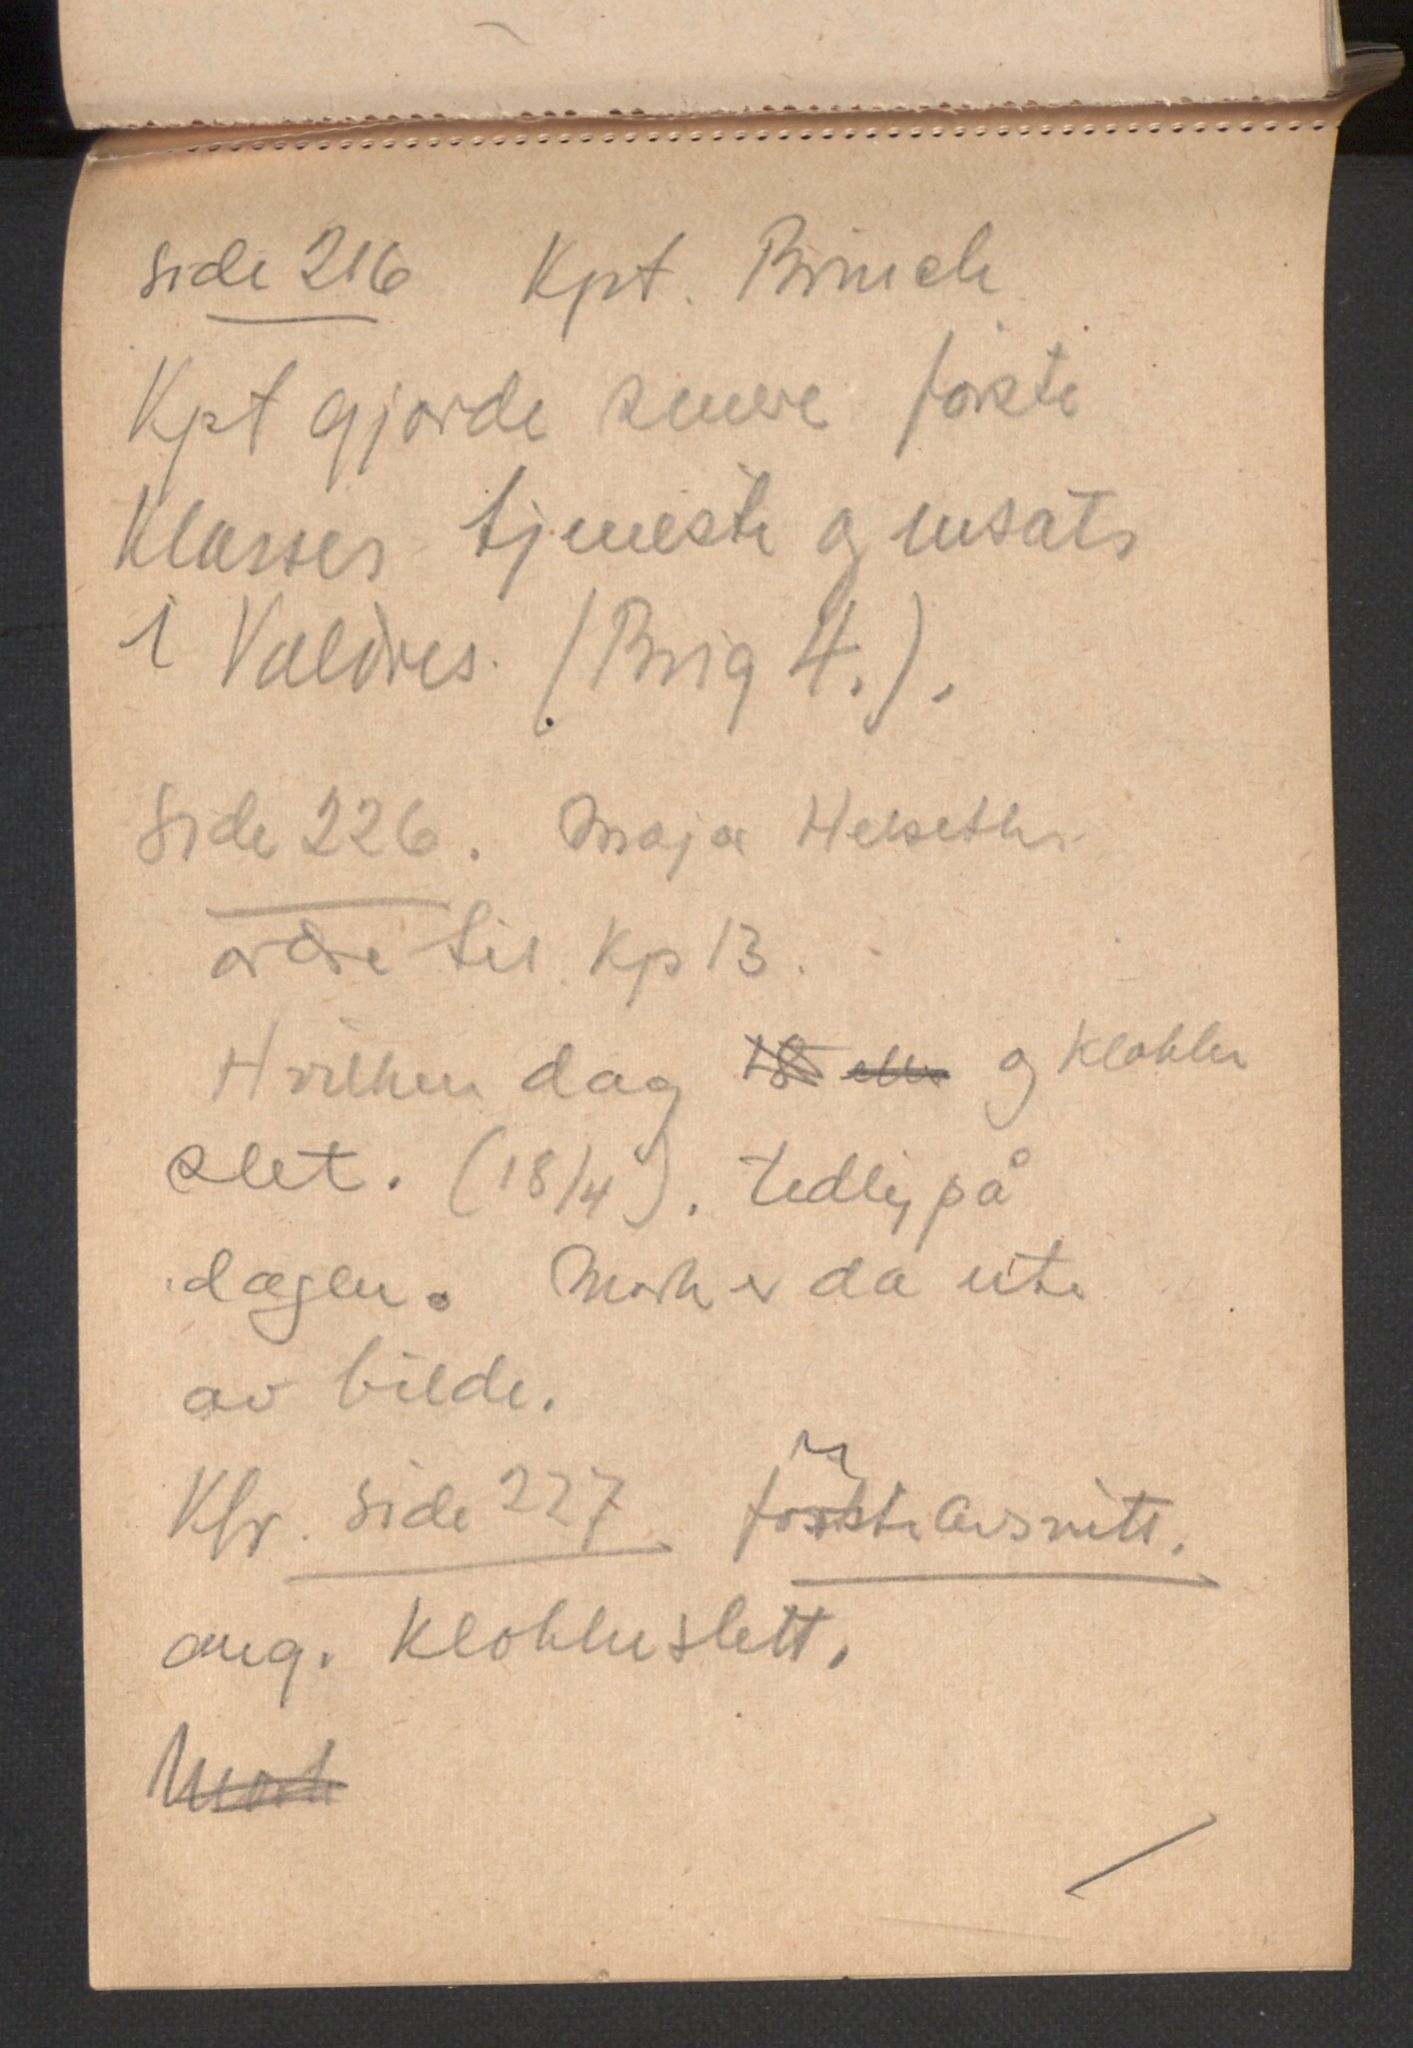 side 216 Kpt. Brinch
Kpt gjorde senere første
Klasses tjeneste og insats
i Valdres. (Brig 4.).
Side 226. Major Helseths
ordre til Kp 13.
Hvilken dag 18 eller og klokke
slet. (18/4). tidlig på
dagen. Mork er da ute
av bilde.
Kfr. side 227 første avsnitt.
ang. klokkeslett.
Mork